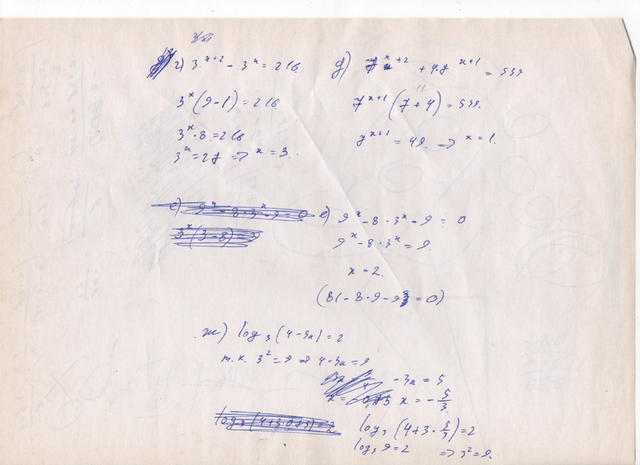 г) 3^{x+2} - 3^x = 216
3^x (9-1) = 216
3^x · 8 = 216
3^x = 27 => x = 3.
д) 7^{x+2} + 4·7^{x+1} = 539
7^{x+1} (7+4) = 539.
11
7^{x+1} = 49. => x = 1.
е) 9^x - 8·3^x - 9 = 0
3^x (3-8) = 9
е) 9^x - 8·3^x - 9 = 0
9^x - 8·3^x = 9.
x = 2.
(81 - 8·9 - 9 = 0)
ж) log_3 (4-3x) = 2
т.к. 3^2 = 9 => 4-3x = 9
-3x = 5
x = -5/3.
log_3 (4+3·5/3) = 2
log_3 9 = 2 => 3^2 = 9.